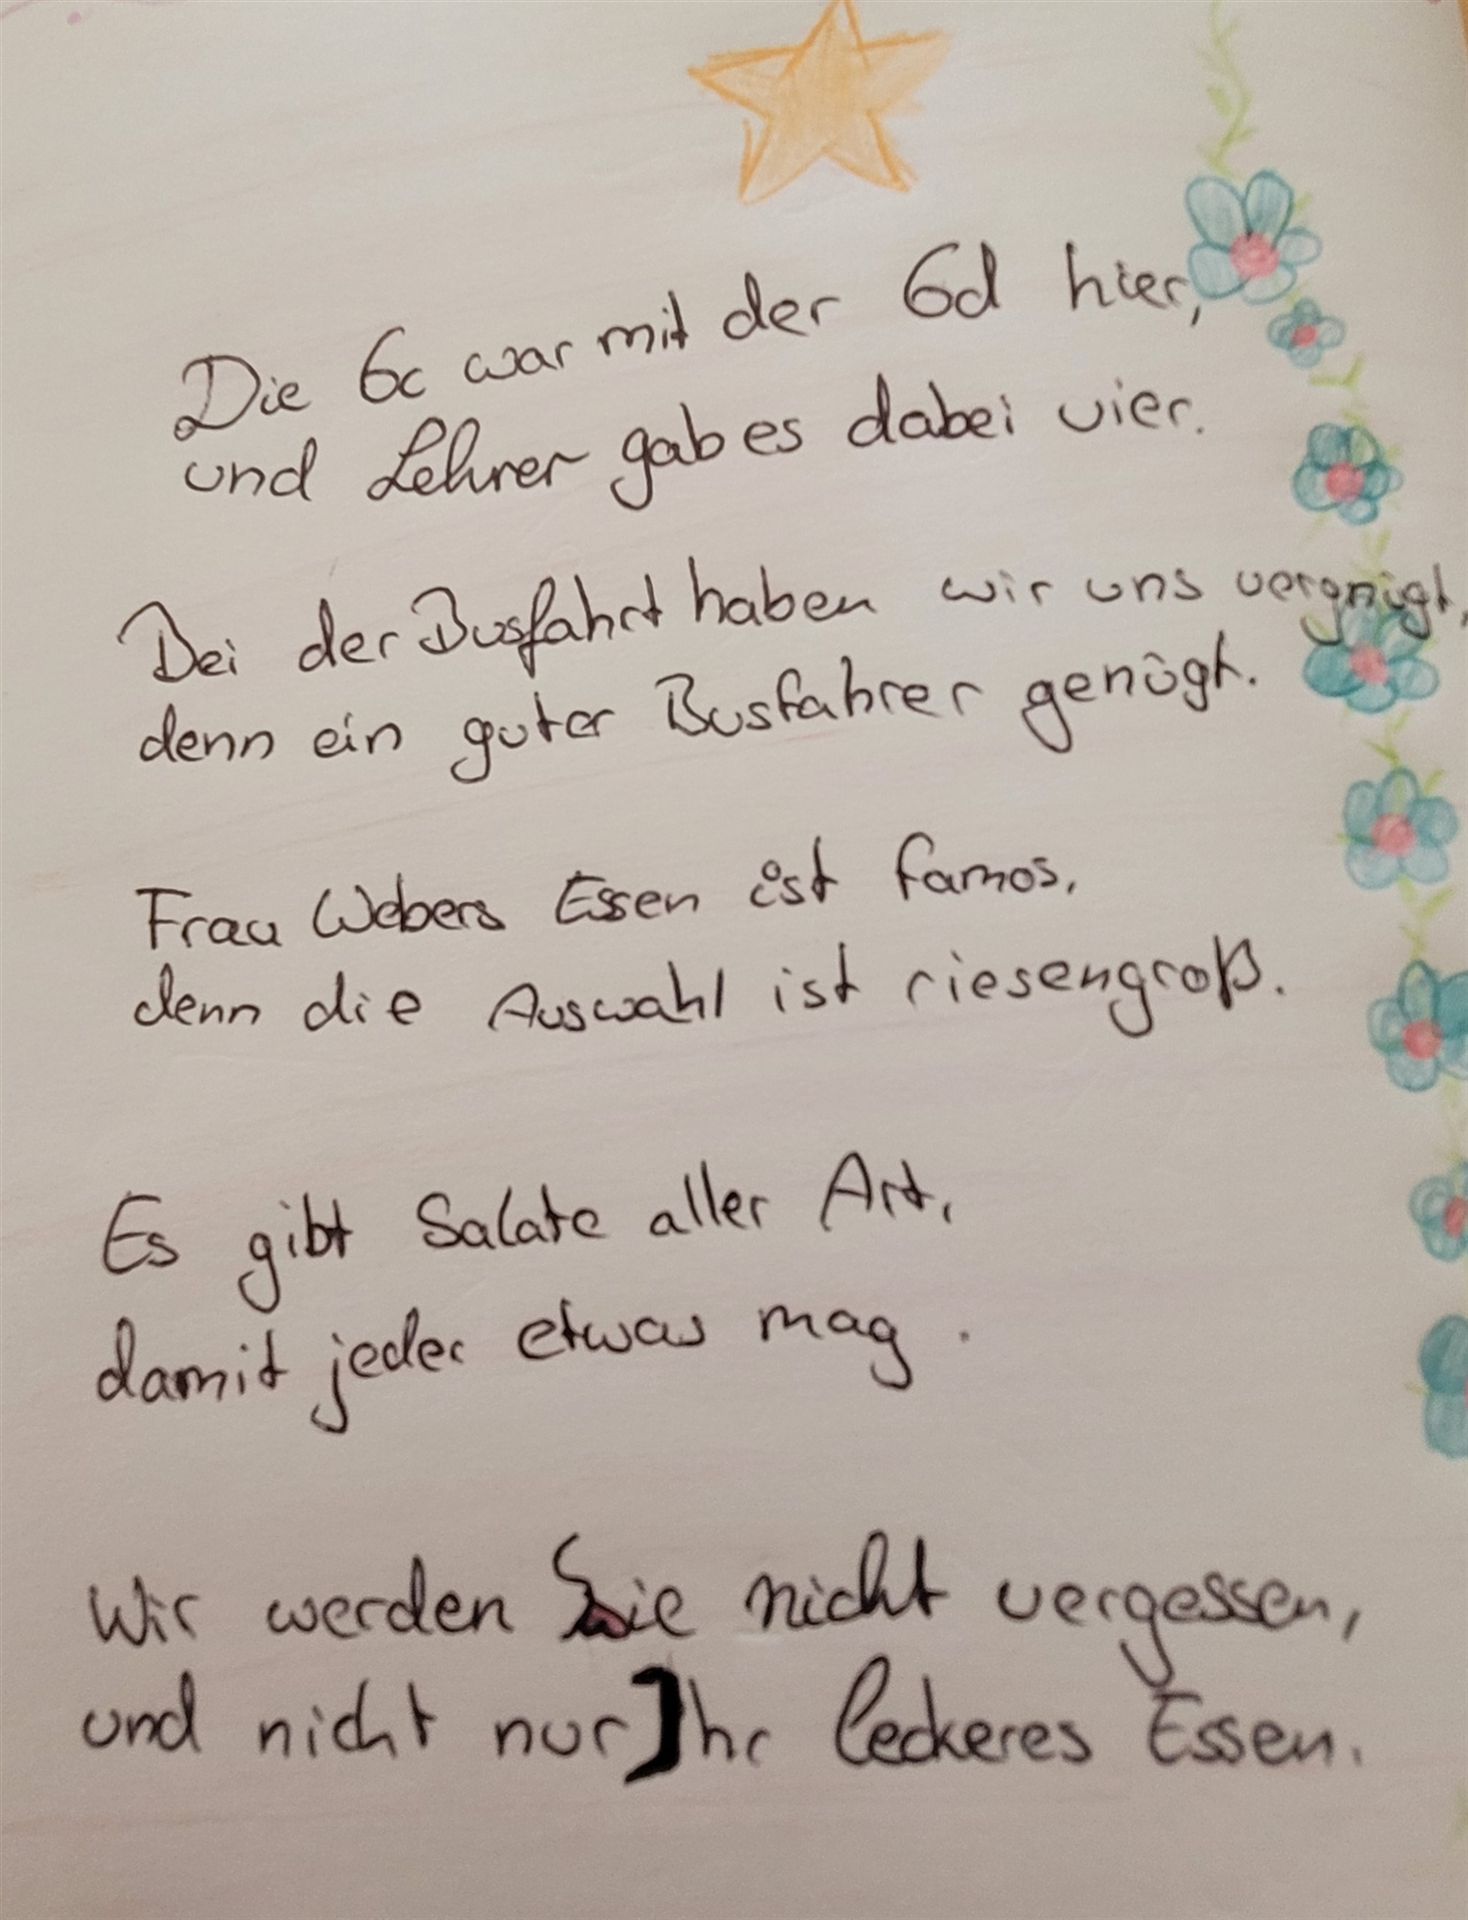 Die 6c war mit der 6d hier,
und Lehrer gab es dabei vier.
Bei der Busfahrt haben wir uns vergnügt,
denn ein guter Busfahrer genügt.
Frau Webers Essen ist famos,
denn die Auswahl ist riesengroß.
Es gibt Salate aller Art,
damit jeder etwas mag.
Wir werden Sie nicht vergessen,
und nicht nur Ihr leckeres Essen.